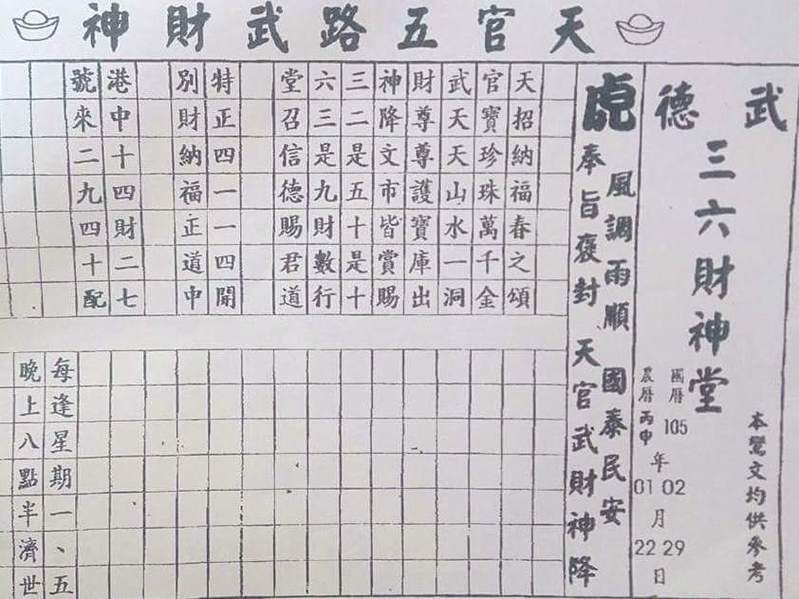 天官五路武財神
武德
三六財神堂
本鸞文均供參考
國曆105年02月29日
農曆丙申年01月22日
虎
風調雨順 國泰民安
奉旨褒封 天官武財神降
天招納福春之頌
官寶珍珠萬千金
武天天山水一洞
財尊尊護寶庫出
神降文市皆賞賜
三二是五十是十
六三是九財數行
堂召信德賜君道
特正四一一四開
別財納福正道中
港中十四財二七
號來二九四十配
每逢星期一、五
晚上八點半濟世